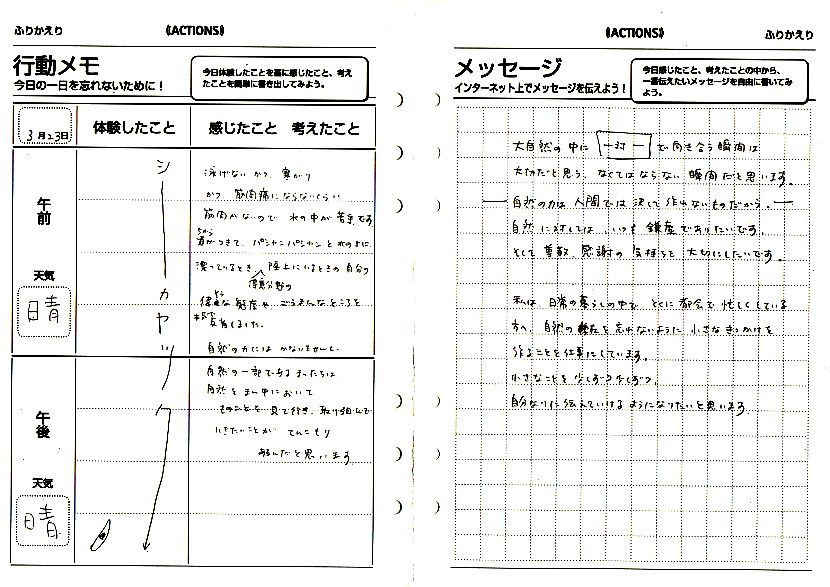 ふりかえり
《ACTIONS》
行動メモ
今日の一日を忘れないために！
今日体験したことを基に感じたこと、考え
たことを簡単に書き出してみよう。
3月23日
体験したこと
感じたこと 考えたこと
午前
天気
晴
シーカヤック
泳げない かつ 寒がり
かつ 筋肉痛にならないくらい
筋肉がないので 水の中が苦手です
バシャンバシャンと水の上に
漂っているとき 陸上にいるときの自分の
な態度や、
しました。
自然の力には かないませんし、
午後
天気
晴
自然の一部である
自然をまん中において
ものごとを見て行き、取り組んで
いきたいことが てんこもり
あるんだと思います
《ACTIONS》
ふりかえり
メッセージ
インターネット上でメッセージを伝えよう！
今日感じたこと、考えたことの中から、
一番伝えたいメッセージを自由に書いてみ
よう。
大自然の中に 一対一 で向き合う瞬間は
大切だと思う、なくてはならない 瞬間だと思います。
自然の力は 人間では 決して作れないものだから。
自然に対しては、いつも 謙虚でありたいです。
そして 尊敬、感謝の気持ちを 大切にしたいです。
私は、日常の暮らしの中で、とくに都会で忙しくしている
方へ、自然の存在を忘れないように 小さなきっかけを
作ることを仕事にしています。
小さなことを 少しずつ少しずつ、
自分なりに伝えていけるようになりたいと思います